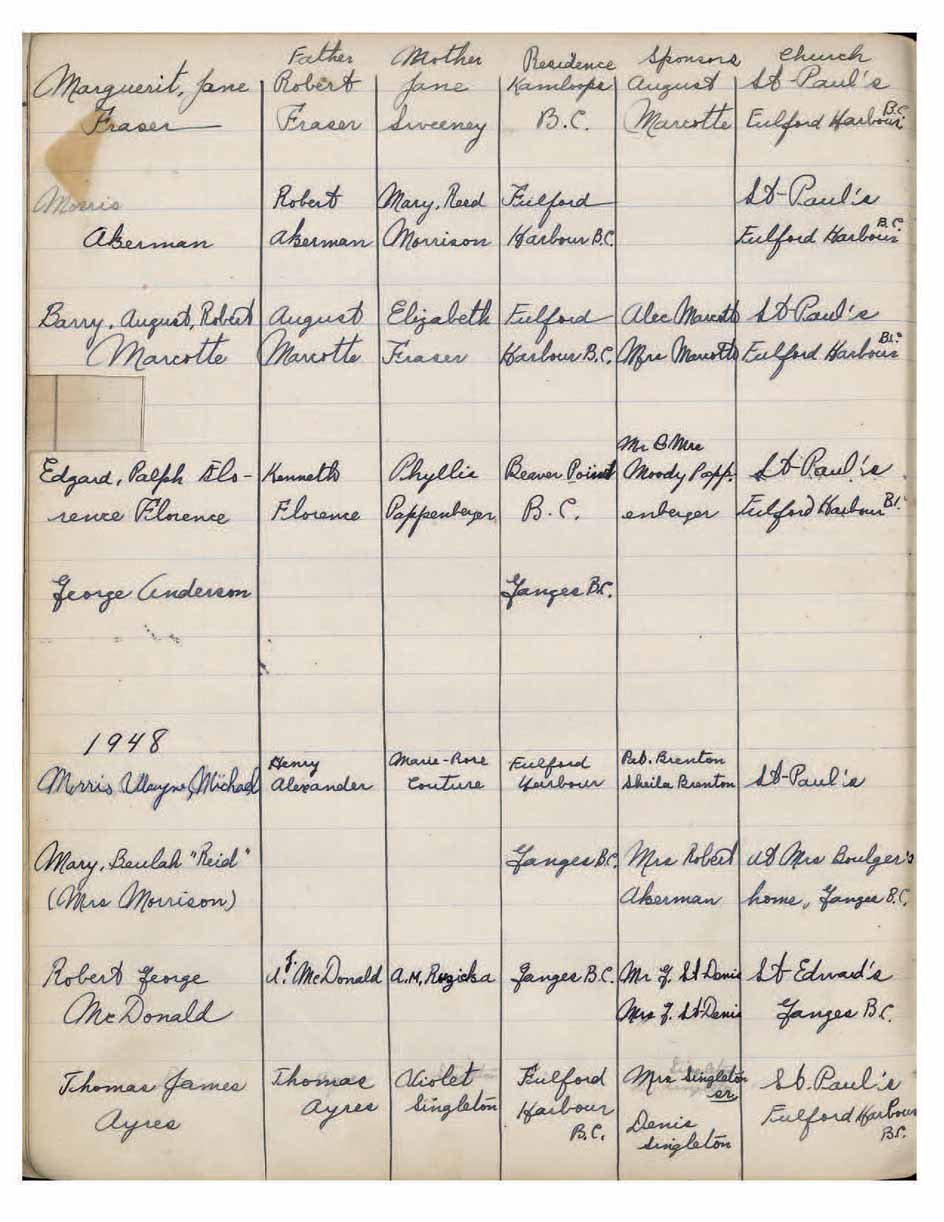 Father Mother Residence Sponsors Church
Marguerit, Jane Robert Jane Kamloops August St-Paul's
Fraser Fraser Sweeney B.C. Marcotte Fulford Harbour B.C.
Morris Robert Mary, Reed Fulford St-Paul's
Akerman Akerman Morrison Harbour B.C. Fulford Harbour B.C.
Barry, August, Robert August Elizabeth Fulford Alec Marcotte St-Paul's
Marcotte Marcotte Fraser Harbour B.C. Mrs Marcotte Fulford Harbour B.C.
Mr & Mrs
Edgard, Ralph Flo- Kenneth Phyllie Beaver Point Moody Papp- St-Paul's
rence Florence Florence Pappenberger B.C. enberger Fulford Harbour B.C.
George Anderson Ganges B.C.
1948
Henry Marie-Rose Fulford Pat. Brenton
Morris Wayne, Michael Alexander Couture Harbour Sheila Brenton St-Paul's
Mary, Beulah "Reid" Ganges B.C. Mrs Robert at Mrs Boulger's
(Mrs Morrison) Akerman home, Ganges B.C.
Robert George McDonald A.M. Ruzicka Ganges B.C. Mr J. St-Denis St-Edward's
McDonald Mrs J. St-Denis Ganges B.C.
Thomas James Thomas Violet Fulford Mrs Singleton sr. St. Paul's
Ayres Ayres Singleton Harbour B.C. Denis Singleton Fulford Harbour B.C.